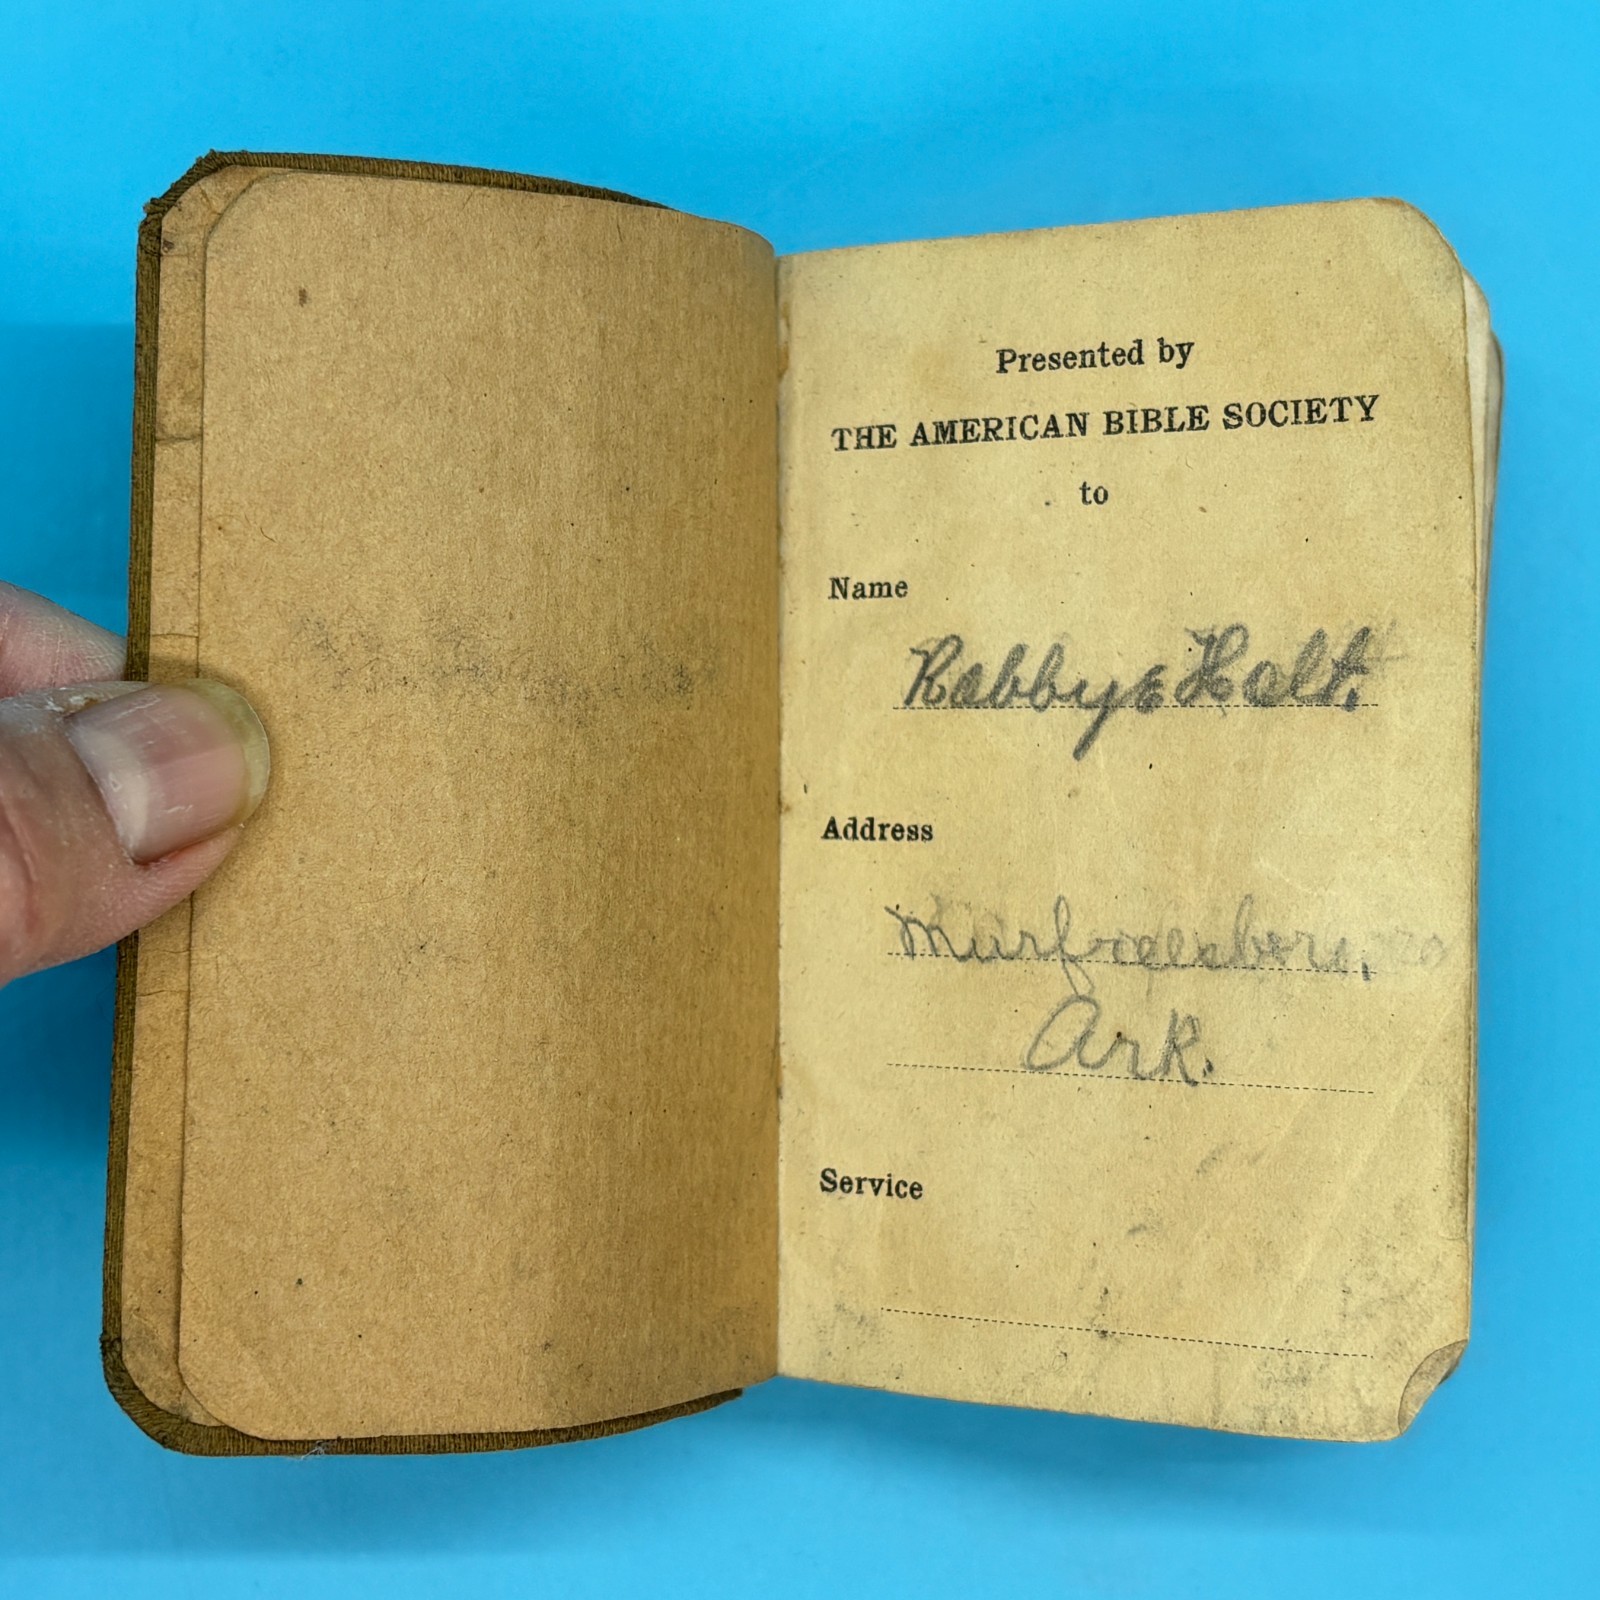 Presented by
THE AMERICAN BIBLE SOCIETY
to
Name
Robbye Holt.
Address
Murfreesboro,
Ark.
Service